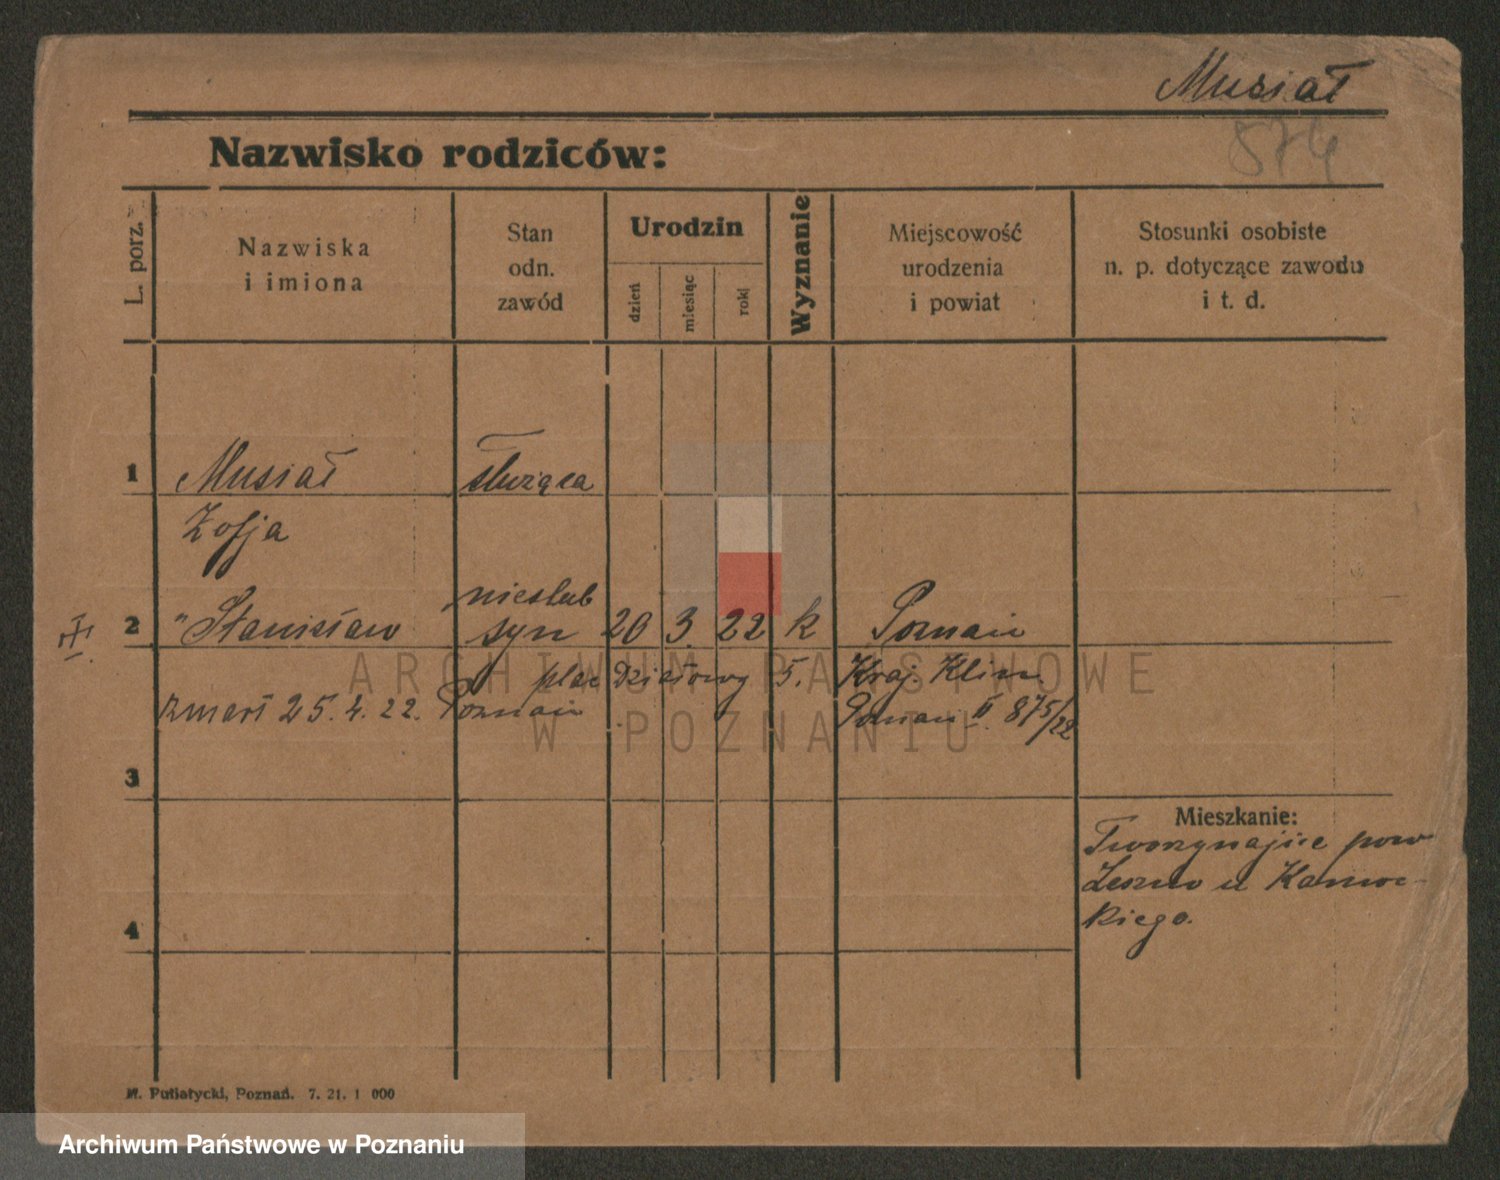 Musiał
874
Nazwisko rodziców:
L. porz.
Nazwiska
i imiona
Stan
odn.
zawód
Urodzin
dzień
miesiąc
rok
Wyznanie
Miejscowość
urodzenia
i powiat
Stosunki osobiste
n. p. dotyczące zawodu
i t. d.
1 Musiał służąca
Zofja
nieslub
2 " Stanisław syn 20 3 22 k Poznań
plac Działowy 5. Kraj. Klin.
zmarł 25. 4. 22. Poznań Poznań II 875/22
3
Mieszkanie:
pow
Leszno u
kiego.
4
W. Putiatycki, Poznań. 7. 21. 1 000
ARCHIWUM PAŃSTWOWE
W POZNANIU
Archiwum Państwowe w Poznaniu